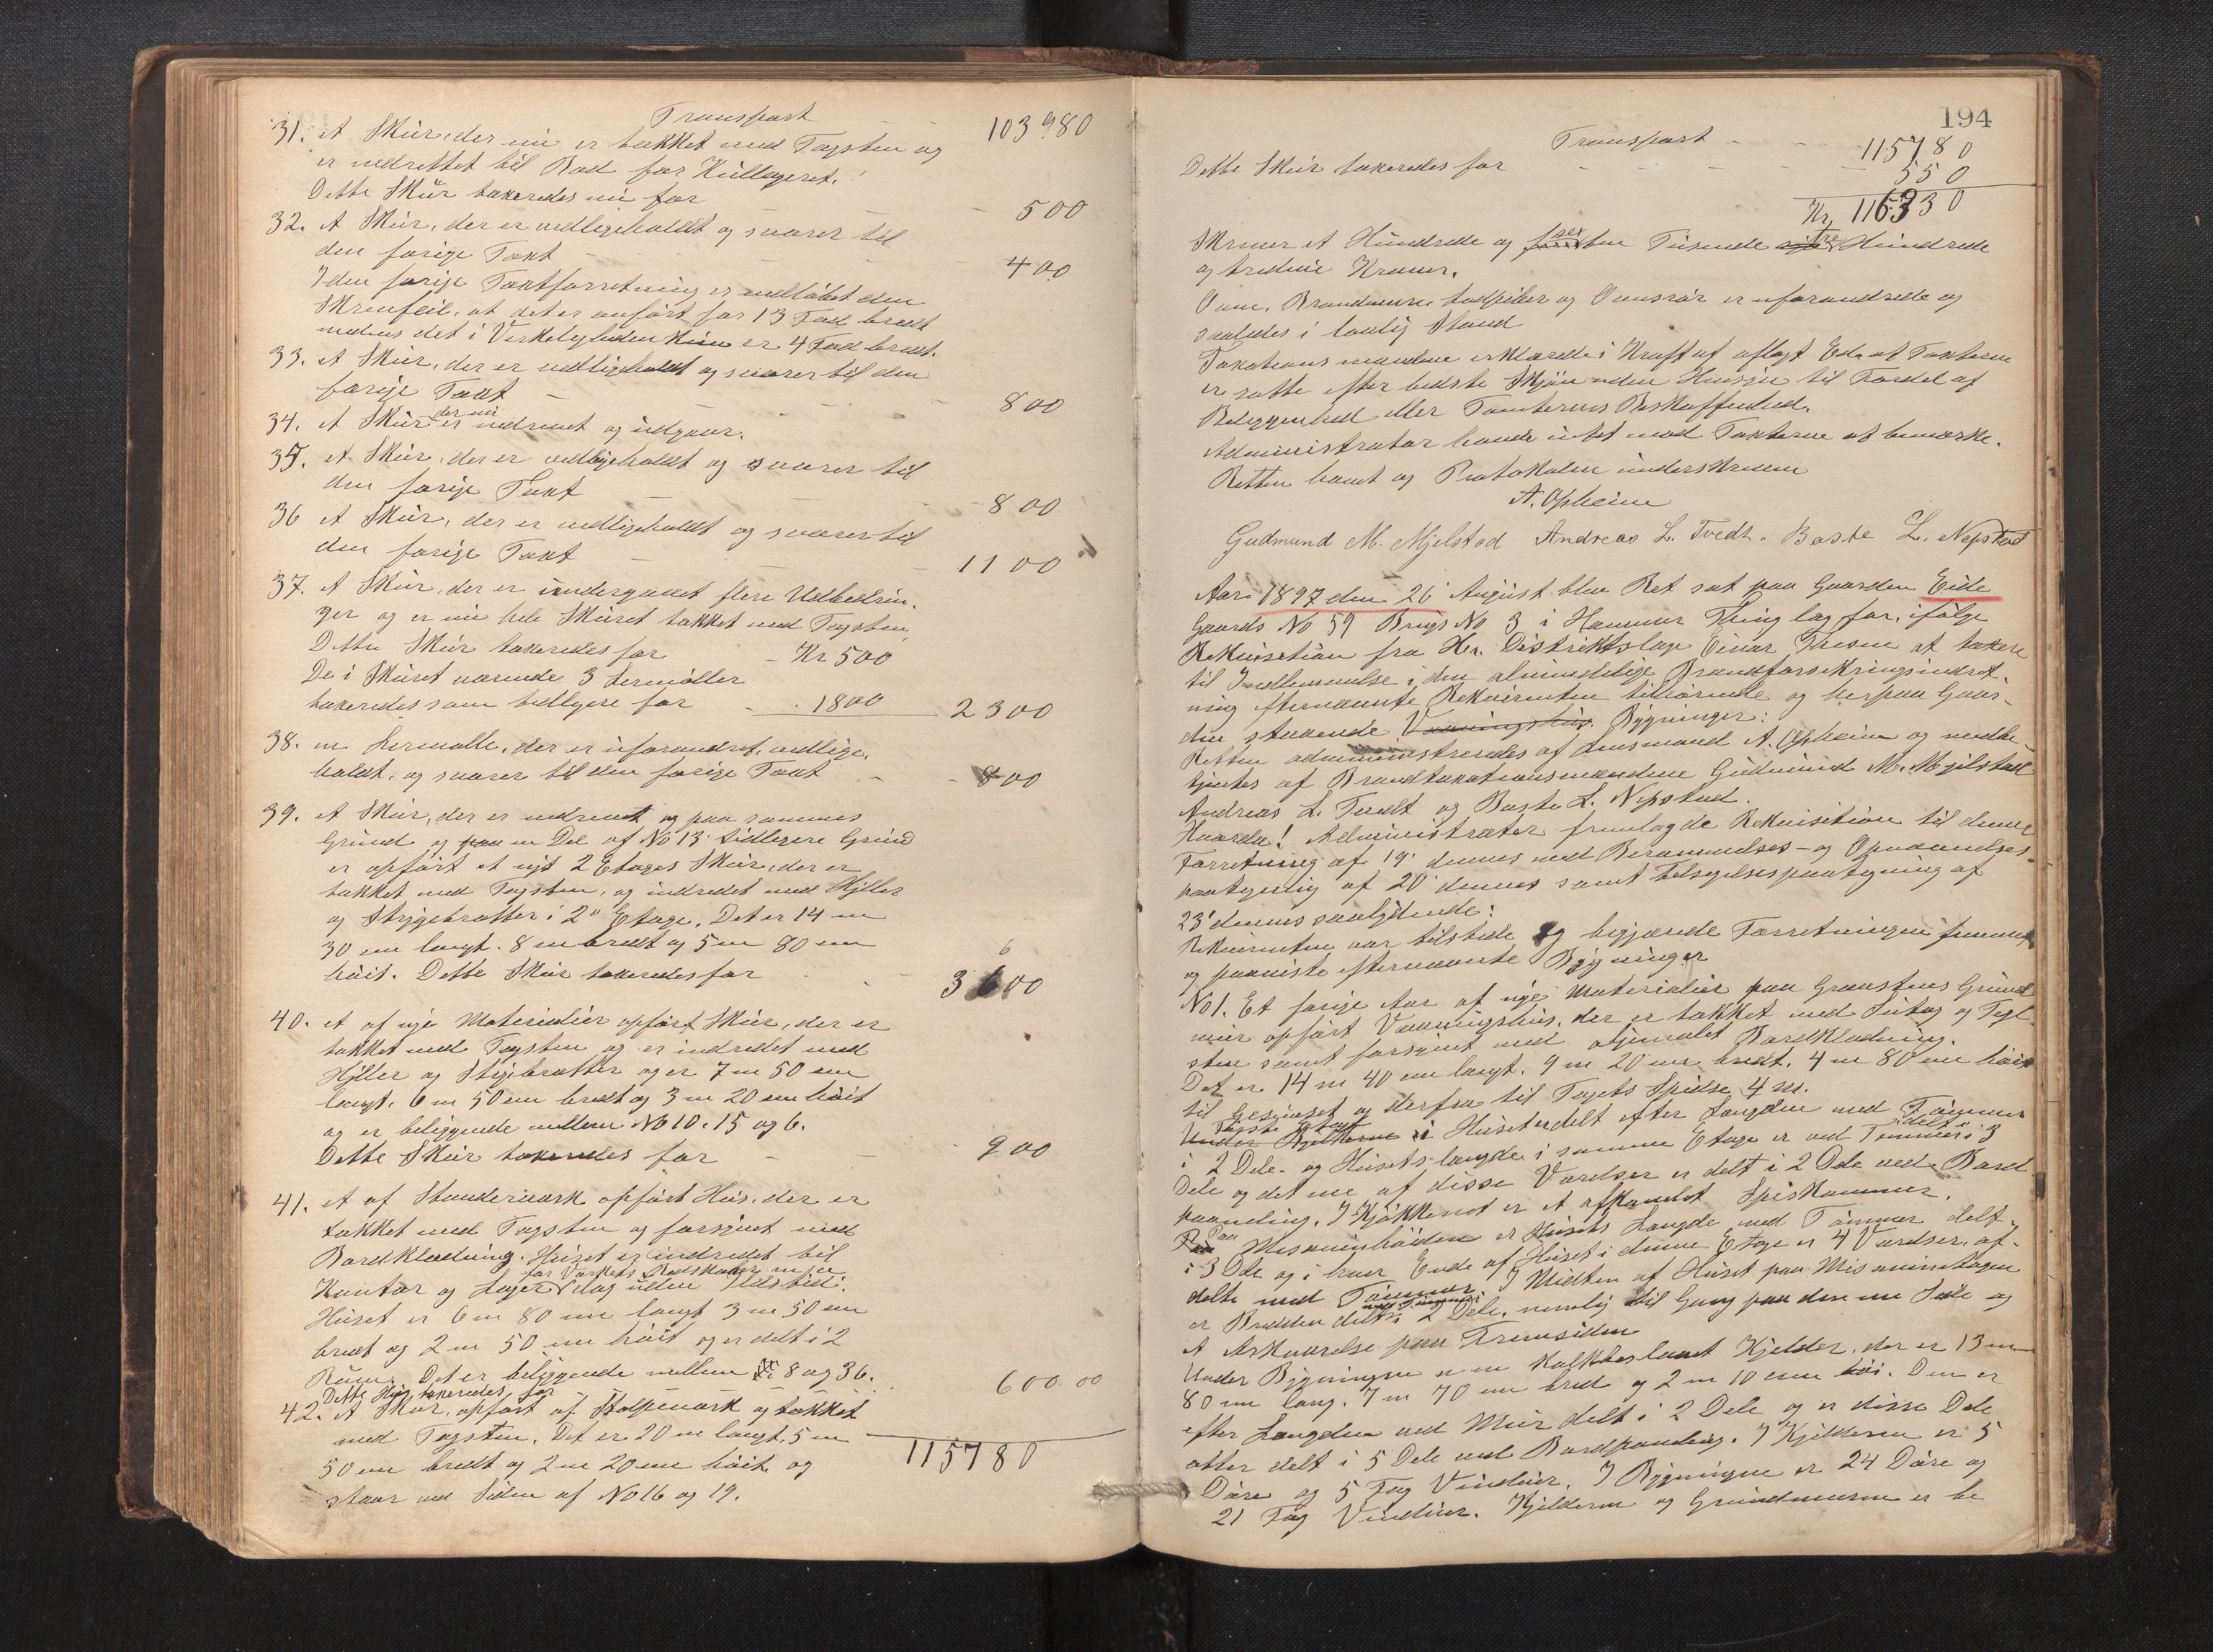 Transport 103980
31. et Skur, der nu er tækket med Tagsten og
er indrettet til Bod for Kullageret.
Dette Skur taxeredes nu for 500
32. et Skur, der er vedligeholdt og svarer til
den forige Taxt 400
I den forige Taxtforretning er indløbet den
Skrivfeil, at det er anført for 13 Fod bredt
medens det i Virkeligheden kun er 4 Fod bredt.
33. et Skur, der er vedligeholdt og svarer til den
forige Taxt 800
34. et Skur der nu er nedrevet og udgaar.
35. et Skur, der er vedligeholdt og svarer til
den forige Taxt 800
36 et Skur, der er vedligeholdt og svarer til
den forige Taxt 1100
37. et Skur, der er undergaaet flere Udbedrin-
ger og er nu hele Skuret tækket med Tagsten,
Dette Skur taxeredes for Kr 500
De i Skuret værende 3 Lermøller
taxeredes som tidligere for 1800 2300
38. en Lermølle, der er uforandret, vedlige-
holdt, og svarer til den forige Taxt 800
39. et Skur, der er nedrevet og paa sammes
Grund og paa en Del af No 13 tidligere Grund
er opført et nyt 2 Etages Skur, der er
tækket med Tagsten, og indredet med Hyller
og Strygebrætter i 2den Etage. Det er 14 m
30 cm langt. 8 m bredt og 5 m 80 cm
høit. Dette Skur taxeredes for 3600
40. et af nye Materialier opført Skur, der er
tækket med Tagsten og er indredet med
Hyller og Stigebrætter og er 7 m 50 cm
langt, 6 m 50 cm bredt og 3 m 20 cm høit
og er beliggende mellem No 10, 15 og 6.
Dette Skur taxeredes for 900
41. et af Stenderværk opført Hus, der er
tækket med Tagsten og forsynet med
Bordklædning. Huset er indredet til
for Værkets Redskaber m. m
Kontor og Lager dog uden Ildsted.
Huset er 6 m 80 cm langt 3 m 50 cm
bredt og 2 m 50 cm høit og er delt i 2
Rum. Det er beliggende mellem No 8 og 36.
Dette Hus taxeredes for 600.00
42. et Skur, opført af Stolpeværk og tækket
med Tagsten. Det er 20 m langt, 5 m
50 cm bredt og 2 m 20 cm høit og 115780
staar ved Siden af No 16 og 19.
194
Transport 115780
Dette Skur taxeredes for 550
Kr. 116330
Skriver et Hundrede og sexten Tusende tre Hundrede
og tredive Kroner.
Ovne, Brandmure, Ildpiber og Ovnsrør er uforandrede og
saaledes i lovlig Stand
Taxationsmændene erklærede i Kraft af aflagt Ed, at Taxterne
er satte efter bedste Skjøn uden Hensyn til Fordel af
Beliggenhed eller Tomternes Beskaffenhed.
Administrator havde intet mod Taxterne at bemærke.
Retten hævet og Protokollen underskreven
A. Opheim
Gudmund M. Mjelstad Andreas L. Tvedt. Baste L. Nepstad
Aar 1897 den 26 August blev Ret sat paa Gaarden Eide
Gaards No 59 Brugs No 3 i Hammer Thinglag for, ifølge
Rekvisition fra Hr. Distriktslæge Einar Thesen at taxere
til Indlemmelse i den almindelige Brandforsikringsindret-
ning efternævnte Rekvirenten tilhørende og herpaa Gaar-
den staaende Vaaningshus. Bygninger:
Retten administreredes af Lensmand A. Opheim og medbe-
tjentes af Brandtaxationsmændene Gudmund M. Mjelstad
Andreas L. Tvedt og Baste L. Nepstad.
Hvorda! Administrator fremlagde Rekvisition til denne
Forretning af 19' dennes med Berammelses- og Opnævnelses-
paategning af 20' dennes samt Tilsigelsespaategning af
23' dennes saalydende:
Rekvirenten var tilstede og begjærede Forretningen fremmet
og paaviste efternævnte Bygninger
No 1. Et forige Aar af nye Materialier paa Graastens Grund-
mur opført Vaaningshus, der er tækket med Sutag og Tegl-
sten samt forsynet med oljemalet Bordklædning.
Det er 14 m 40 cm langt. 9 m 20 cm bredt. 4 m 80 cm høit
til Gesimset og derfra til Tagets Spidse 4 m.
Første Etage
Under Bjelkerne i Huset er delt efter Længden med Tømmer
i 2 Dele, og Husets længde i samme Etage er ved Tømmer delt i 3
Dele og det ene af disse Værelser er delt i 2 Dele ved Bord
paaneling. I Kjøkkenet er et afpanelet Spiskammer.
Paa Mesaninhøiden er Husets Længde med Tømmer delt
i 3 Dele og i hver Ende af Huset i denne Etage er 4 Værelser, af-
delte med Tømmer. I Midten af Huset paa Mesaninetagen
er Bredden delt med Tømmer i 2 Dele, nemlig til Gang paa den ene Side og
et Værelse paa Fremsiden
Under Bygningen er en kalkbeslaaet Kjelder, der er 13 m
80 cm lang. 7 m 70 cm bred og 2 m 10 cm høi. Den er
efter Længden ved Mur delt i 2 Dele og er disse Dele
atter delt i 5 Dele ved Bordpaneling. I Kjelderen er 5
Døre og 5 Fag Vinduer. I Bygningen er 24 Døre og
21 Fag Vinduer. Kjelderen og Grundmuren er be